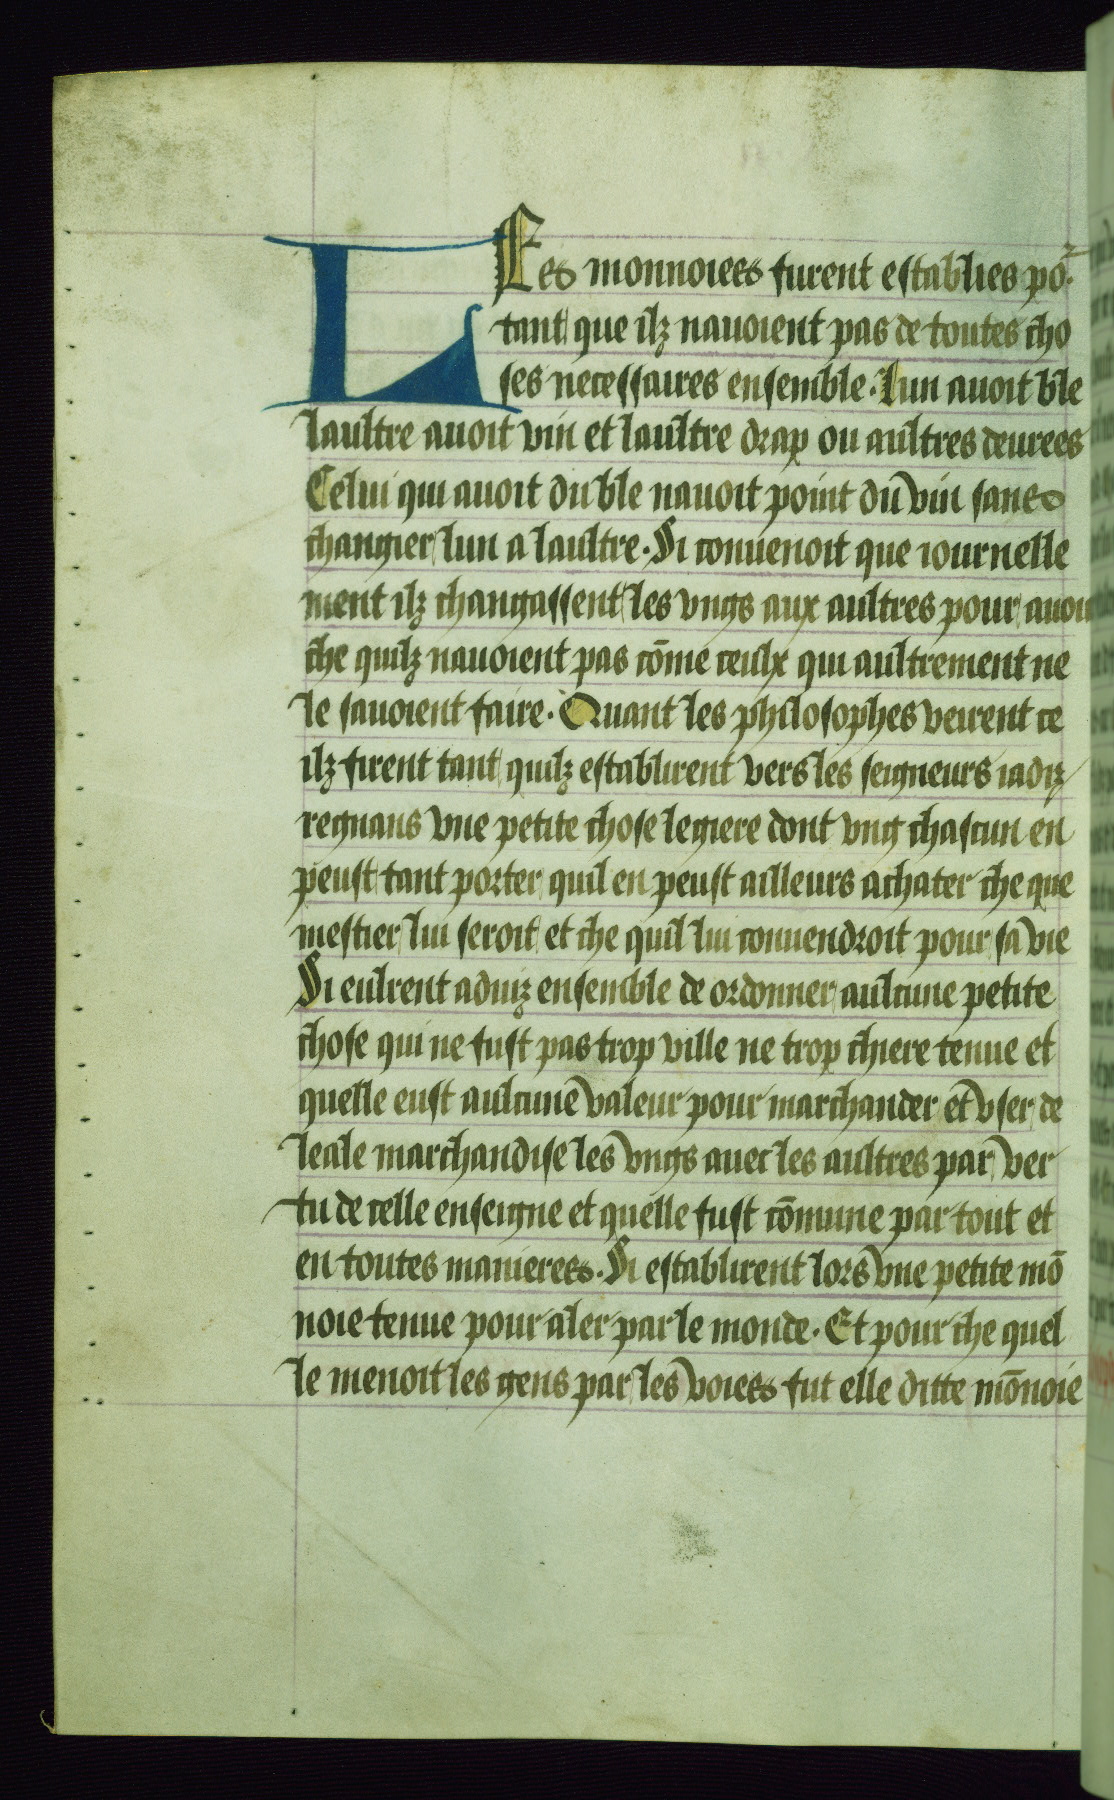 Les monnoiees furent establies por
tant que ilz nauoient pas de toutes cho
ses necessaires ensemble. Lun auoit ble
laultre auoit vin et laultre drap ou aultres deurees
Celui qui auoit du ble nauoit point du vin sanes
changier lun a laultre. Si conuenoit que iournelle
ment ilz changassent les vngs aux aultres pour auoir
che quilz nauoient pas cōme ceulx qui aultrement ne
le sauoient faire. Quant les philosophes veirent ce
ilz firent tant quilz establirent vers les seigneurs iadiz
regnans vne petite chose legiere dont vng chascun en
peust tant porter quil en peust ailleurs achater che que
mestier lui seroit et che quil lui conuendroit pour sa vie
Si eulrent aduiz ensemble de ordonner aulcune petite
chose qui ne fust pas trop ville ne trop chiere tenue et
quelle eust aulcune valeur pour marchander et vser de
leale marchandise les vngs auec les aultres par ver
tu de celle enseigne et quelle fust cōmune par tout et
en toutes manierees. Si establirent lors vne petite mō
noie tenue pour aler par le monde. Et pour che quel
le menoit les gens par les voiees fut elle ditte mōnoie